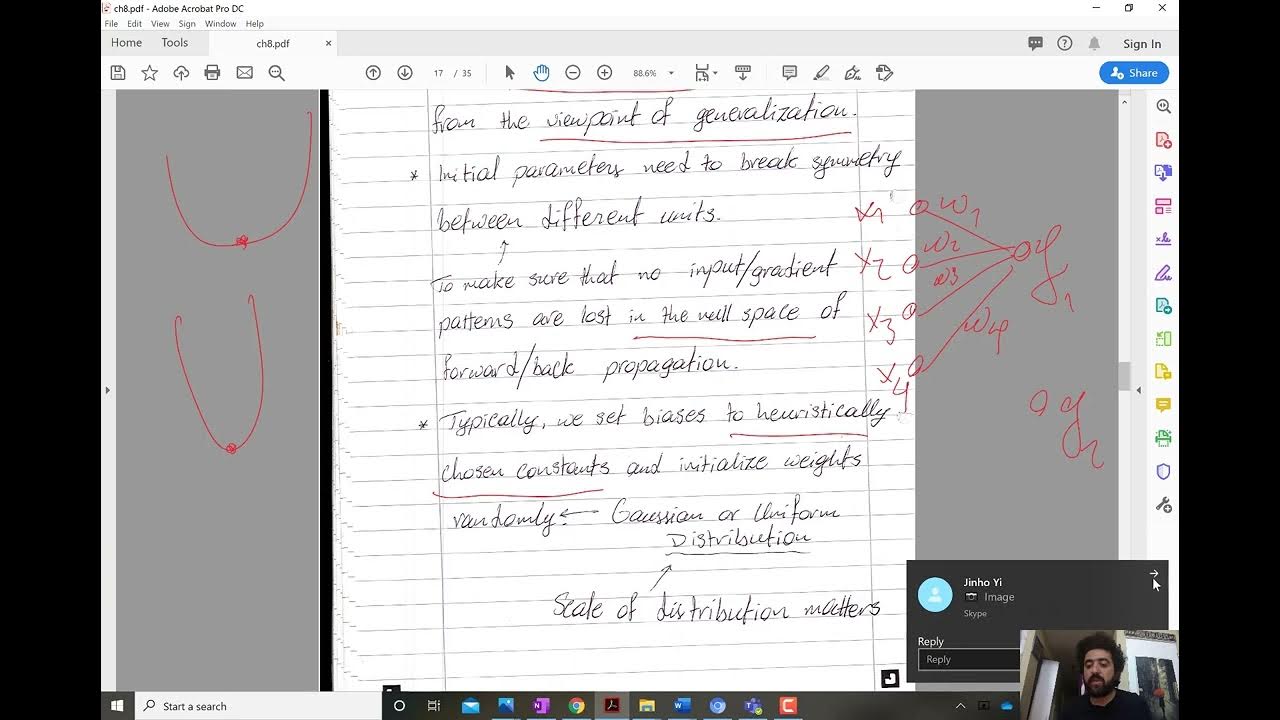 ch8.pdf - Adobe Acrobat Pro DC
File Edit View Sign Window Help
Home Tools ch8.pdf × Sign In
17 / 35 88.6% Share
from the viewpoint of generalization.
* Initial parameters need to break symmetry
between different units.
To make sure that no input/gradient
patterns are lost in the null space of
forward/back propagation.
* Typically, we set biases to heuristically
chosen constants and initialize weights
randomly ← Gaussian or Uniform
Distribution
Scale of distribution matters
x1 w1
x2 w2
w3 y1
x3 w4
x4
y2
Jinho Yi
Image
Skype
Reply
Reply
Start a search